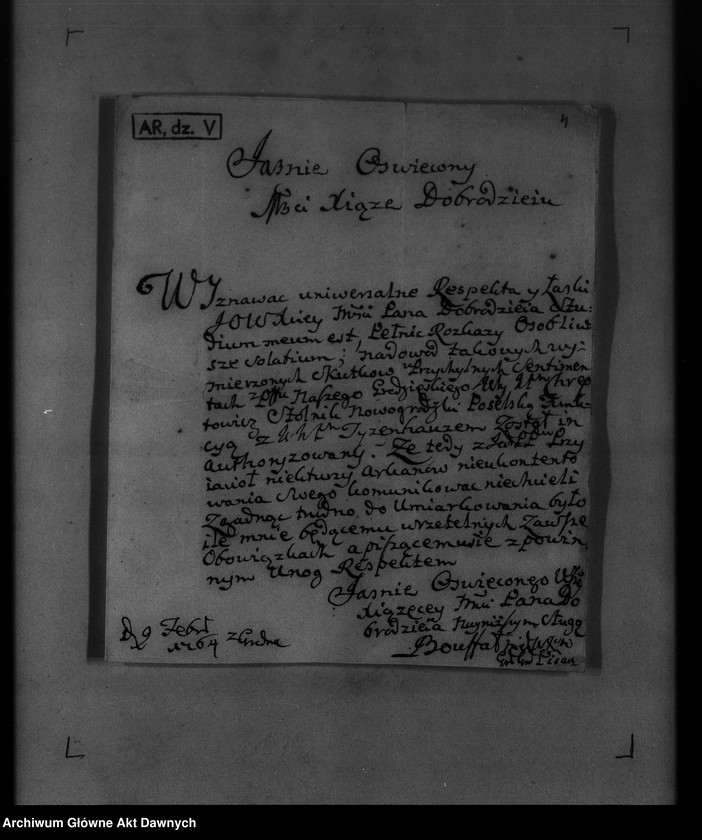 4
AR, dz. V
Jasnie Oswiecony
Mści Xiąze Dobrodzieiu
WYznawac uniwersalne Respekta y Łaski
JOWXiey Pana Dobrodzieia Stu:
dium meum est, Pełnic Rozkazy Osobliw
sze solatium; nadowod takowych wy:
mierzonych Skutkow Przychylnych Sentimen
tach Naszego Grodzieskiego Chrep
towicz Stolnik Nowogrodzki Poselską
cyą z Tyzenhauzem Został in
Authoryzowany. Ze tedy Przy
iacioł niekturzy Arkanow nieukontento
wania Swego komunikowac niechcieli
Zgadnąc trudno, do Umiarkowania było
ile mnie będącemu wrzetelnych Zawsze
Obowiązkach a piszącemusie zpowin
nym Unog Respektem
Jasnie Oswieconego
Xiązęcey Pana Do
brodzieia Nayniższym Sługą
D 9 Febr
1764 z Grodna
Bouffał
Pisarz
Archiwum Główne Akt Dawnych